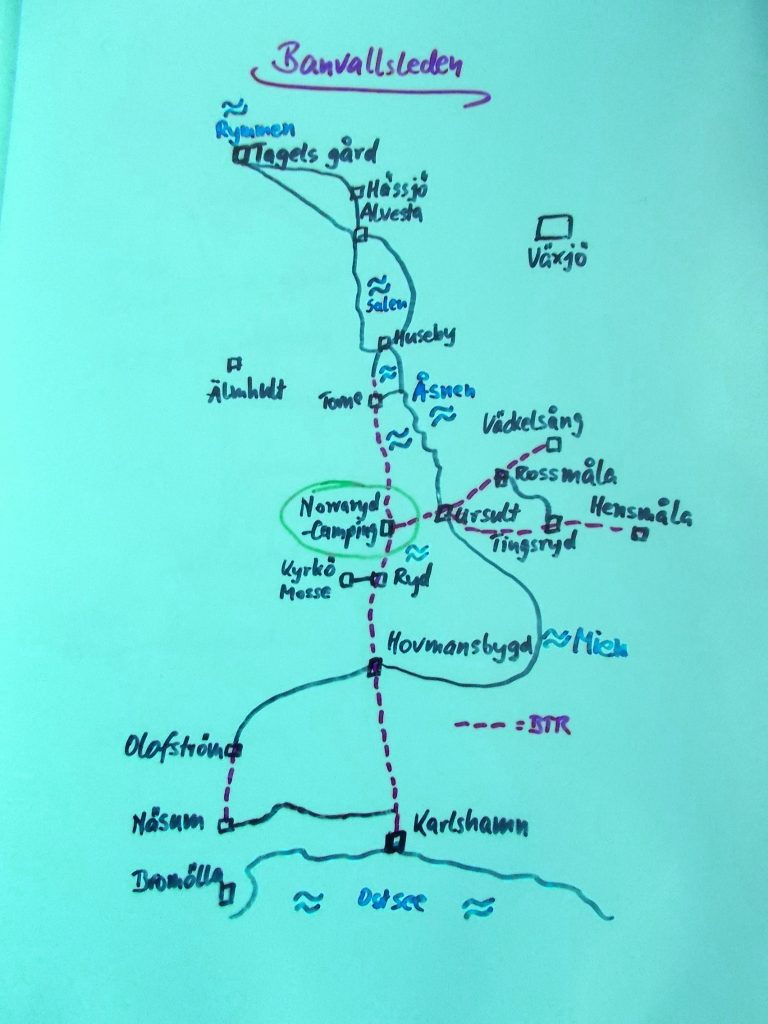 Banvallsleden
Rymmen
Tagels gård
Hässjö
Alvesta
Växjö
Salen
Huseby
Älmhult
Torne
Åsnen
Väckelsång
Rossmåla
Norraryd
-Camping
Ursult
Hensmåla
Tingsryd
Kyrkö
Mosse
Ryd
Hovmansbygd
Mien
= BTR
Olofström
Näsum
Karlshamn
Bromölla
Ostsee